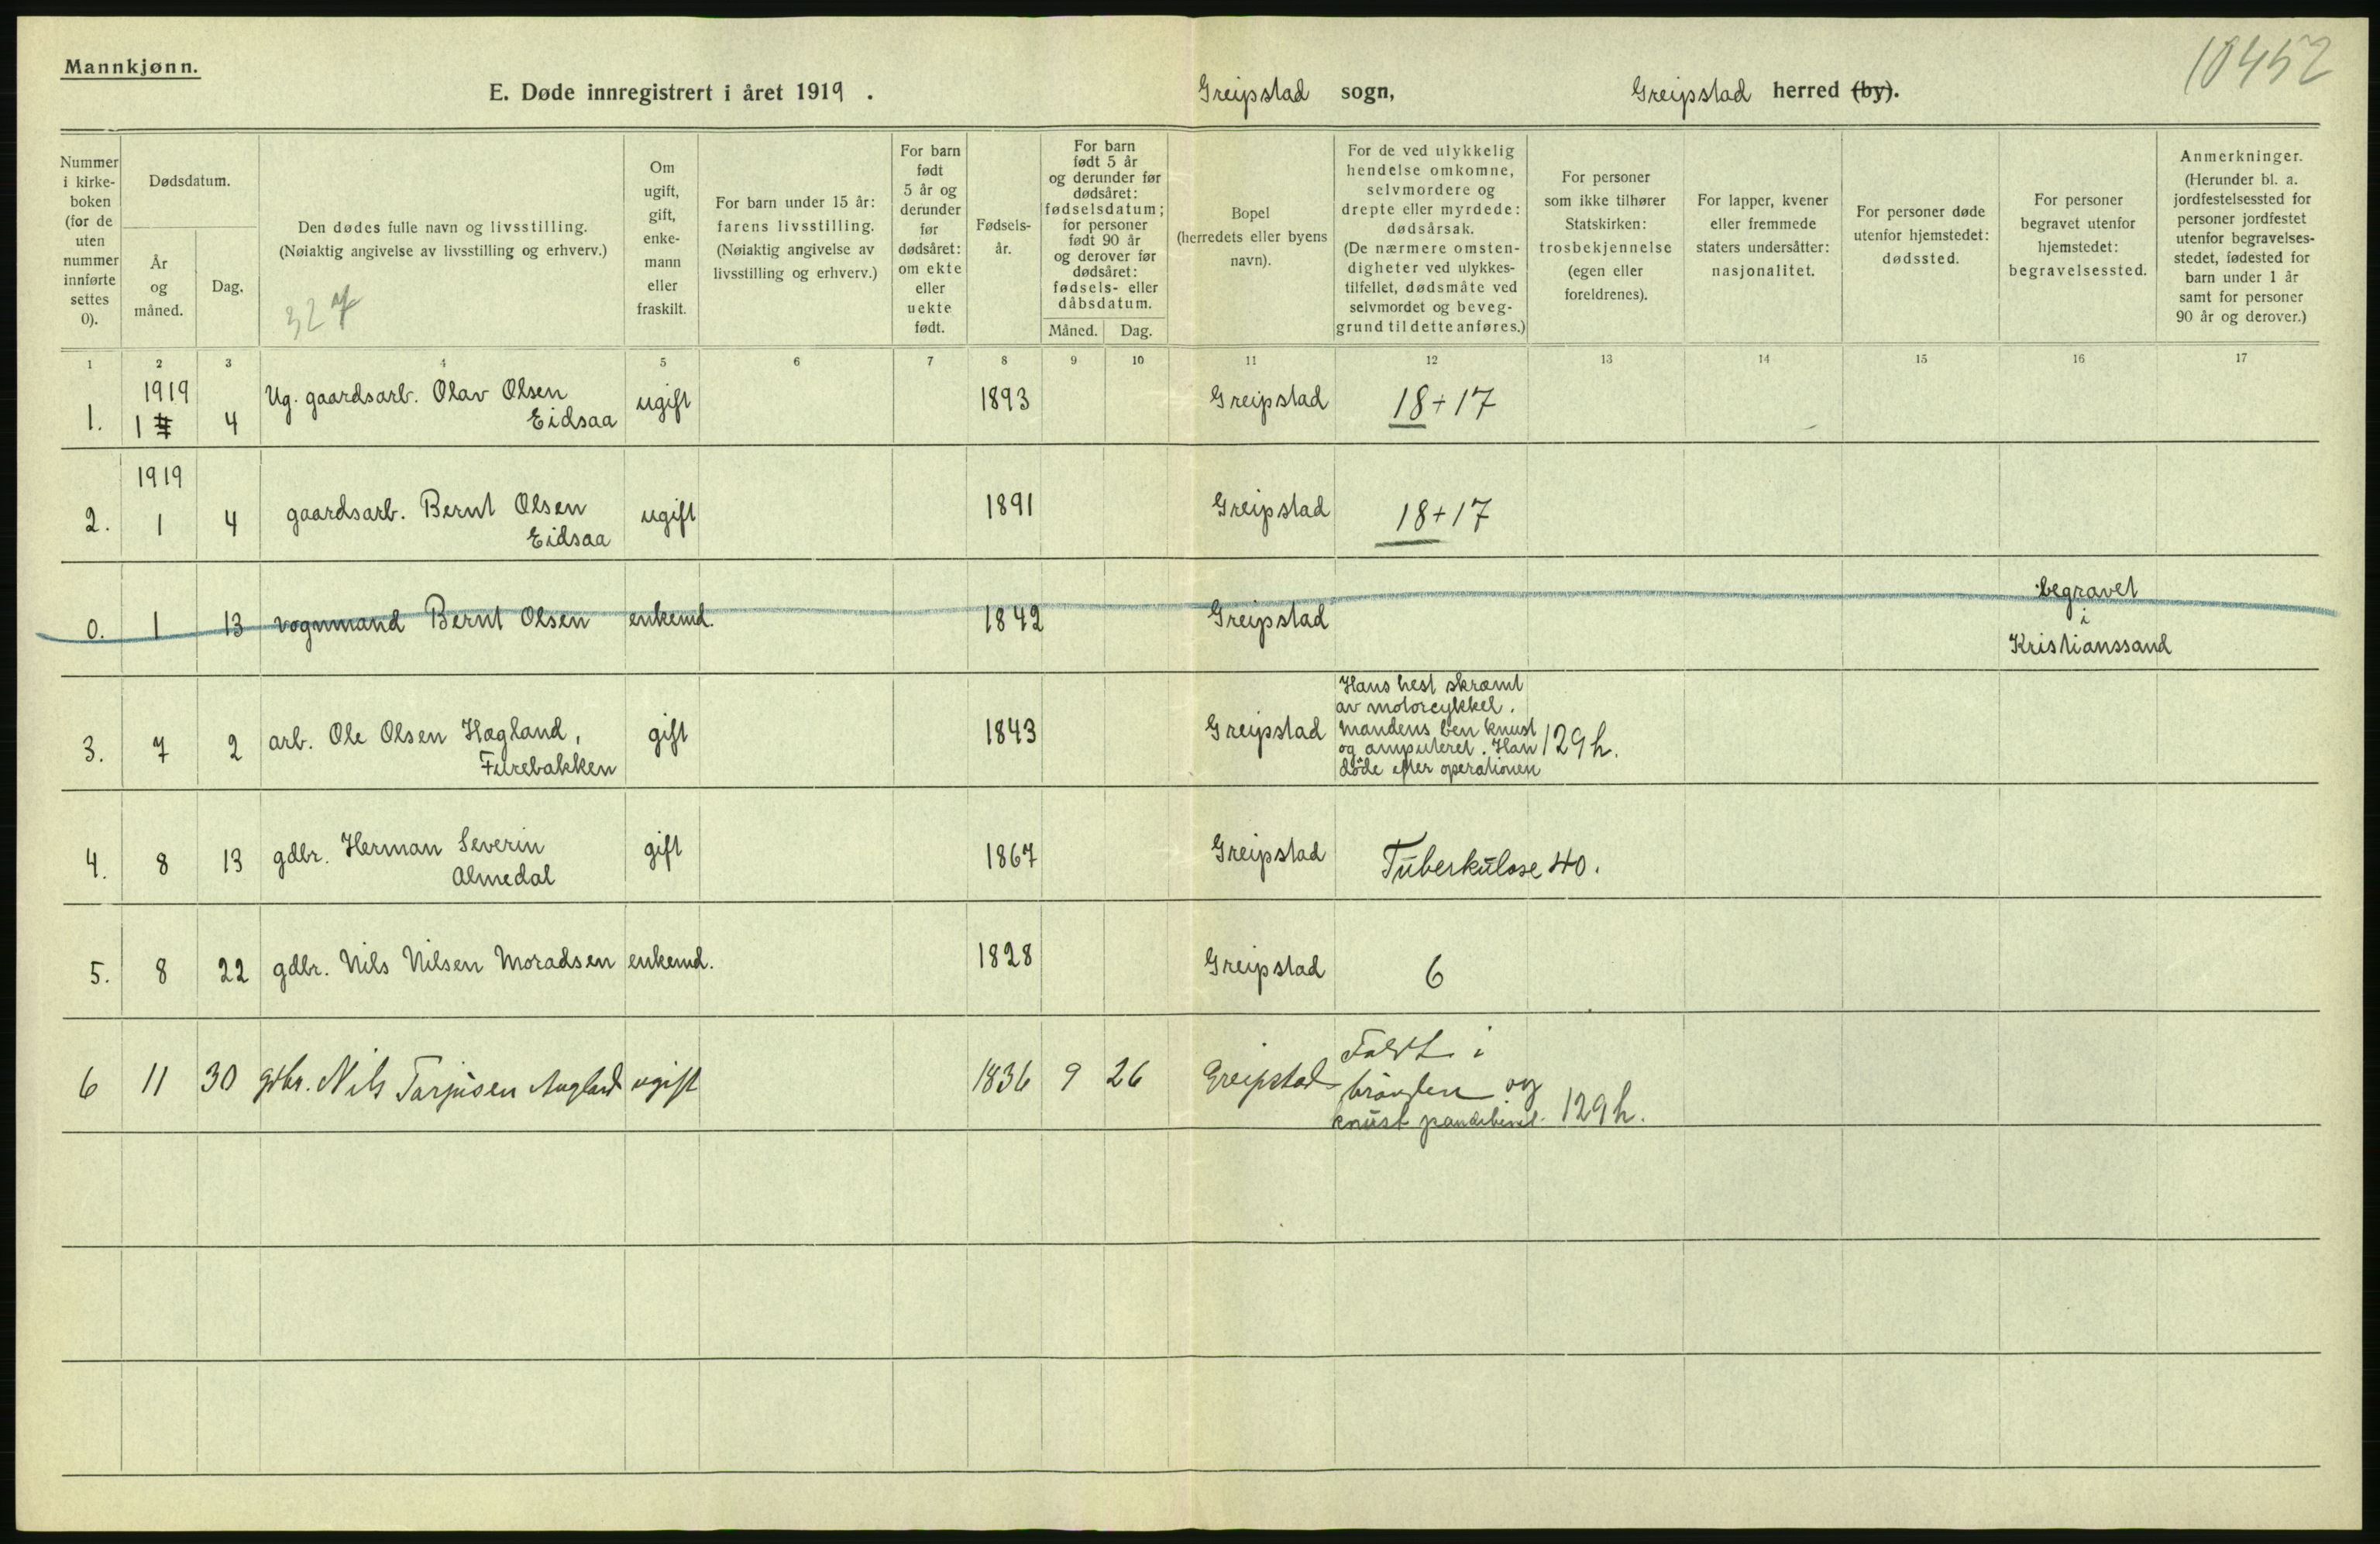 Mannkjønn.
10452
E. Døde innregistrert i året 1919.
Greipstad sogn,
Greipstad herred (by).
Nummer i kirke-boken (for de uten nummer innførte settes 0).
Dødsdatum.
År og måned.
Dag.
Den dødes fulle navn og livsstilling.
(Nøiaktig angivelse av livsstilling og erhverv.)
Om ugift, gift, enke-mann eller fraskilt.
For barn under 15 år: farens livsstilling.
(Nøiaktig angivelse av livsstilling og erhverv.)
For barn født 5 år og derunder før dødsåret: om ekte eller uekte født.
Fødsels-år.
For barn født 5 år og derunder før dødsåret: fødselsdatum; for personer født 90 år og derover før dødsåret: fødsels- eller dåbsdatum.
Måned.
Dag.
Bopel
(herredets eller byens navn).
For de ved ulykkelig hendelse omkomne, selvmordere og drepte eller myrdede: dødsårsak.
(De nærmere omsten-digheter ved ulykkes-tilfellet, dødsmåte ved selvmordet og beveg-grund til dette anføres.)
For personer som ikke tilhører Statskirken: trosbekjennelse (egen eller foreldrenes).
For lapper, kvener eller fremmede staters undersåtter: nasjonalitet.
For personer døde utenfor hjemstedet: dødssted.
For personer begravet utenfor hjemstedet: begravelsessted.
Anmerkninger.
(Herunder bl. a. jordfestelsessted for personer jordfestet utenfor begravelses-stedet, fødested for barn under 1 år samt for personer 90 år og derover.)
1 2 3 4 5 6 7 8 9 10 11 12 13 14 15 16 17
1919
1. 1 4 Ug. gaardsarb. Olav Olsen Eidsaa ugift 1893 Greipstad 18+17
1919
2. 1 4 gaardsarb. Bernt Olsen Eidsaa ugift 1891 Greipstad 18+17
0. 1 13 vognmand Bernt Olsen enkemd. 1842 Greipstad begravet i Kristianssand
3. 7 2 arb. Ole Olsen Hagland, Furebakken gift 1843 Greipstad Hans hest skræmt av motorcykkel. Mandens ben knust og amputeret. Han døde efter operationen 129 h.
4. 8 13 gdbr. Herman Severin Almedal gift 1867 Greipstad Tuberkulose 40.
5. 8 22 gdbr. Nils Nilsen Moradsen enkemd. 1828 Greipstad 6
6 11 30 gdbr. Nils Tarjusen Augland ugift 1836 9 26 Greipstad Faldt i brønden og knust 129 h.